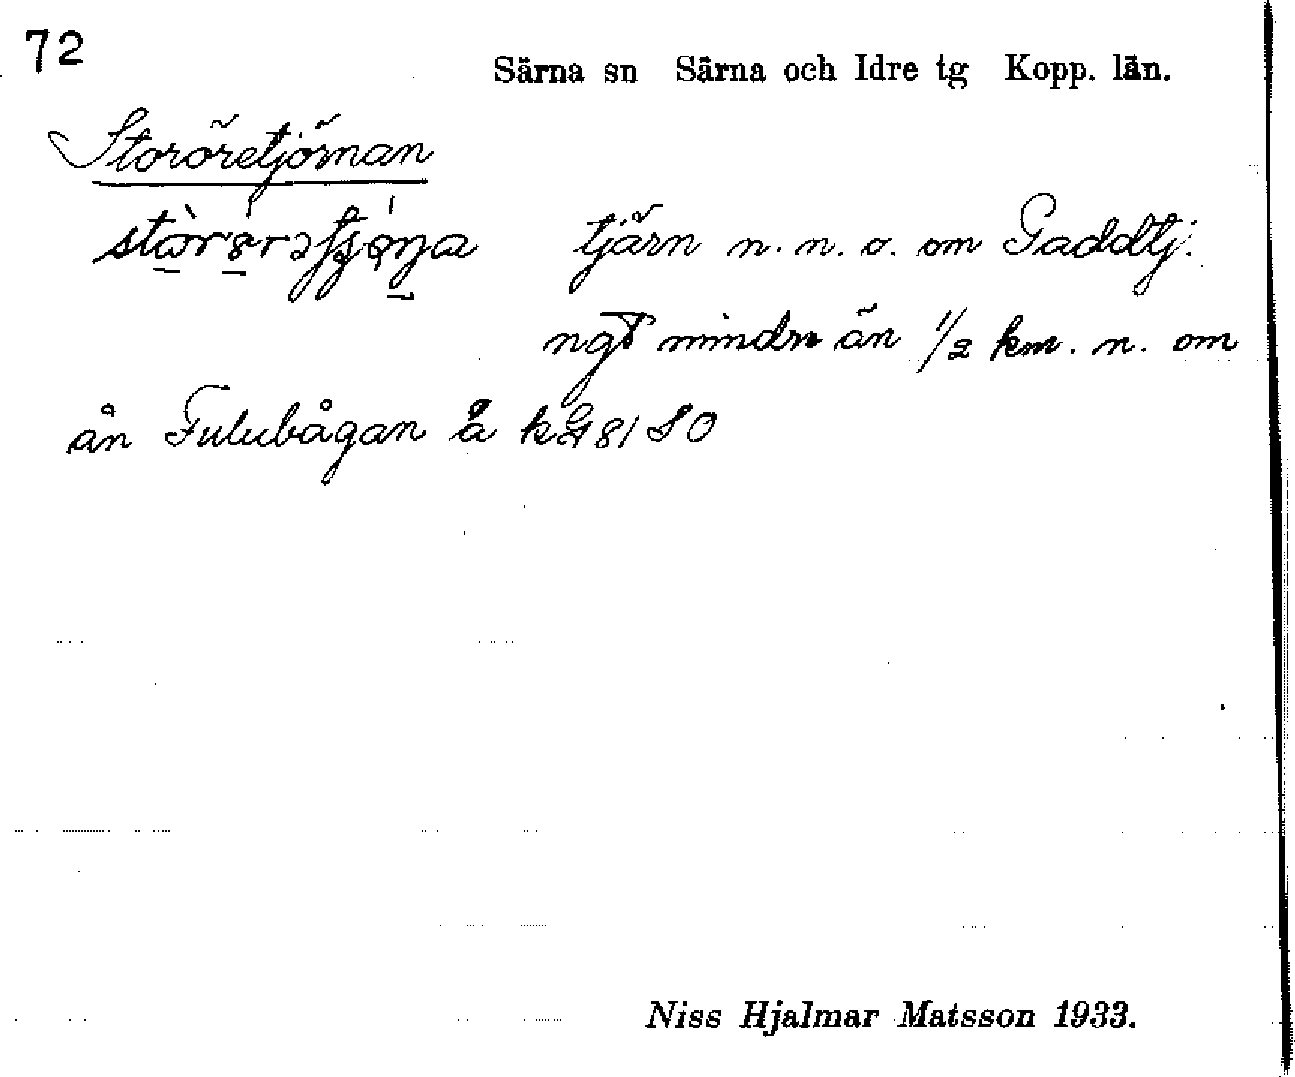 72
Särna sn Särna och Idre tg Kopp. län.
Storöretjörnan
tjärn n. n. o. om Gaddtj.
ngt mindre än 1/2 km. n. om
ån Fulubågan å kG 81 SO
Niss Hjalmar Matsson 1933.